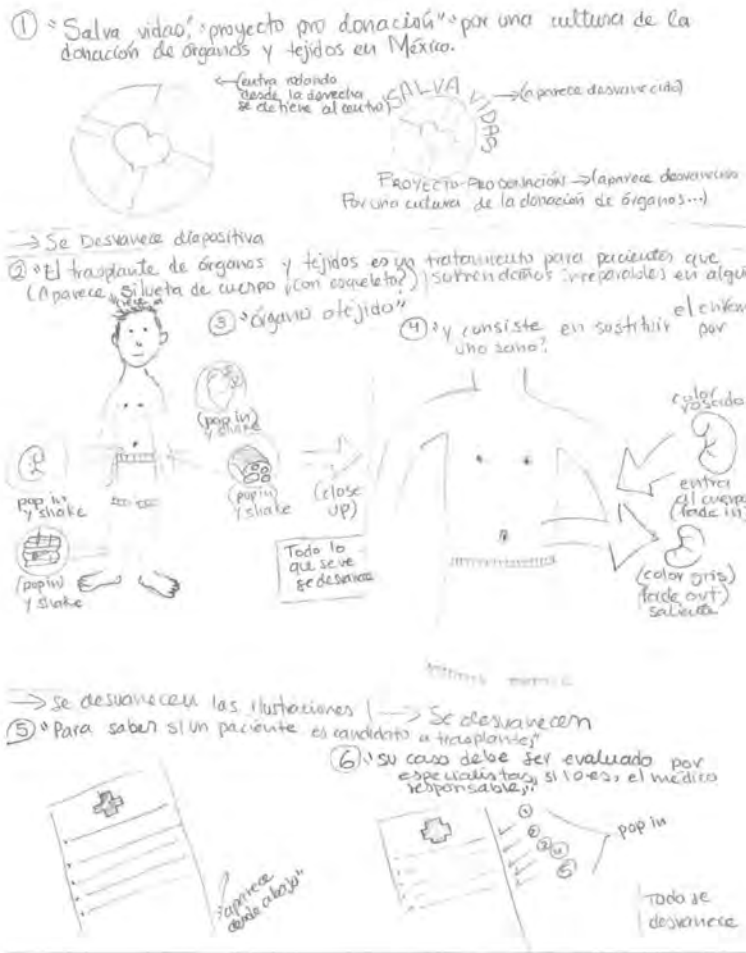 ① "Salva vidas," "proyecto pro donación" "por una cultura de la
donación de órganos y tejidos en México.
(entra rodando
desde la derecha
se detiene al centro)
SALVA VIDAS
→(aparece desvanecido)
PROYECTO PRO DONACIÓN →(aparece desvanecido
Por una cultura de la donación de órganos...)
→ Se Desvanece diapositiva
② "El trasplante de órganos y tejidos es un tratamiento para pacientes que
(Aparece silueta de cuerpo (con esqueleto?)) sufren daños irreparables en algún
③ "órgano o tejido"
④ "y consiste en sustituir el enfermo
por uno sano".
(pop in)
y shake
pop in
y shake
(pop in)
y shake
(popin)
y shake
(close
up)
Todo lo
que se ve
se desvanece
color
rosado
entra
al cuerpo
(fade in)
(color gris)
(fade out)
saliente
→ se desvanecen las ilustraciones
→ Se desvanecen
⑤ "Para saber si un paciente es candidato a trasplante,"
⑥ "su caso debe ser evaluado por
especialistas, si lo es, el médico
responsable,"
"aparece
desde abajo"
① ② ③ ④ ⑤
pop in
Todo se
desvanece